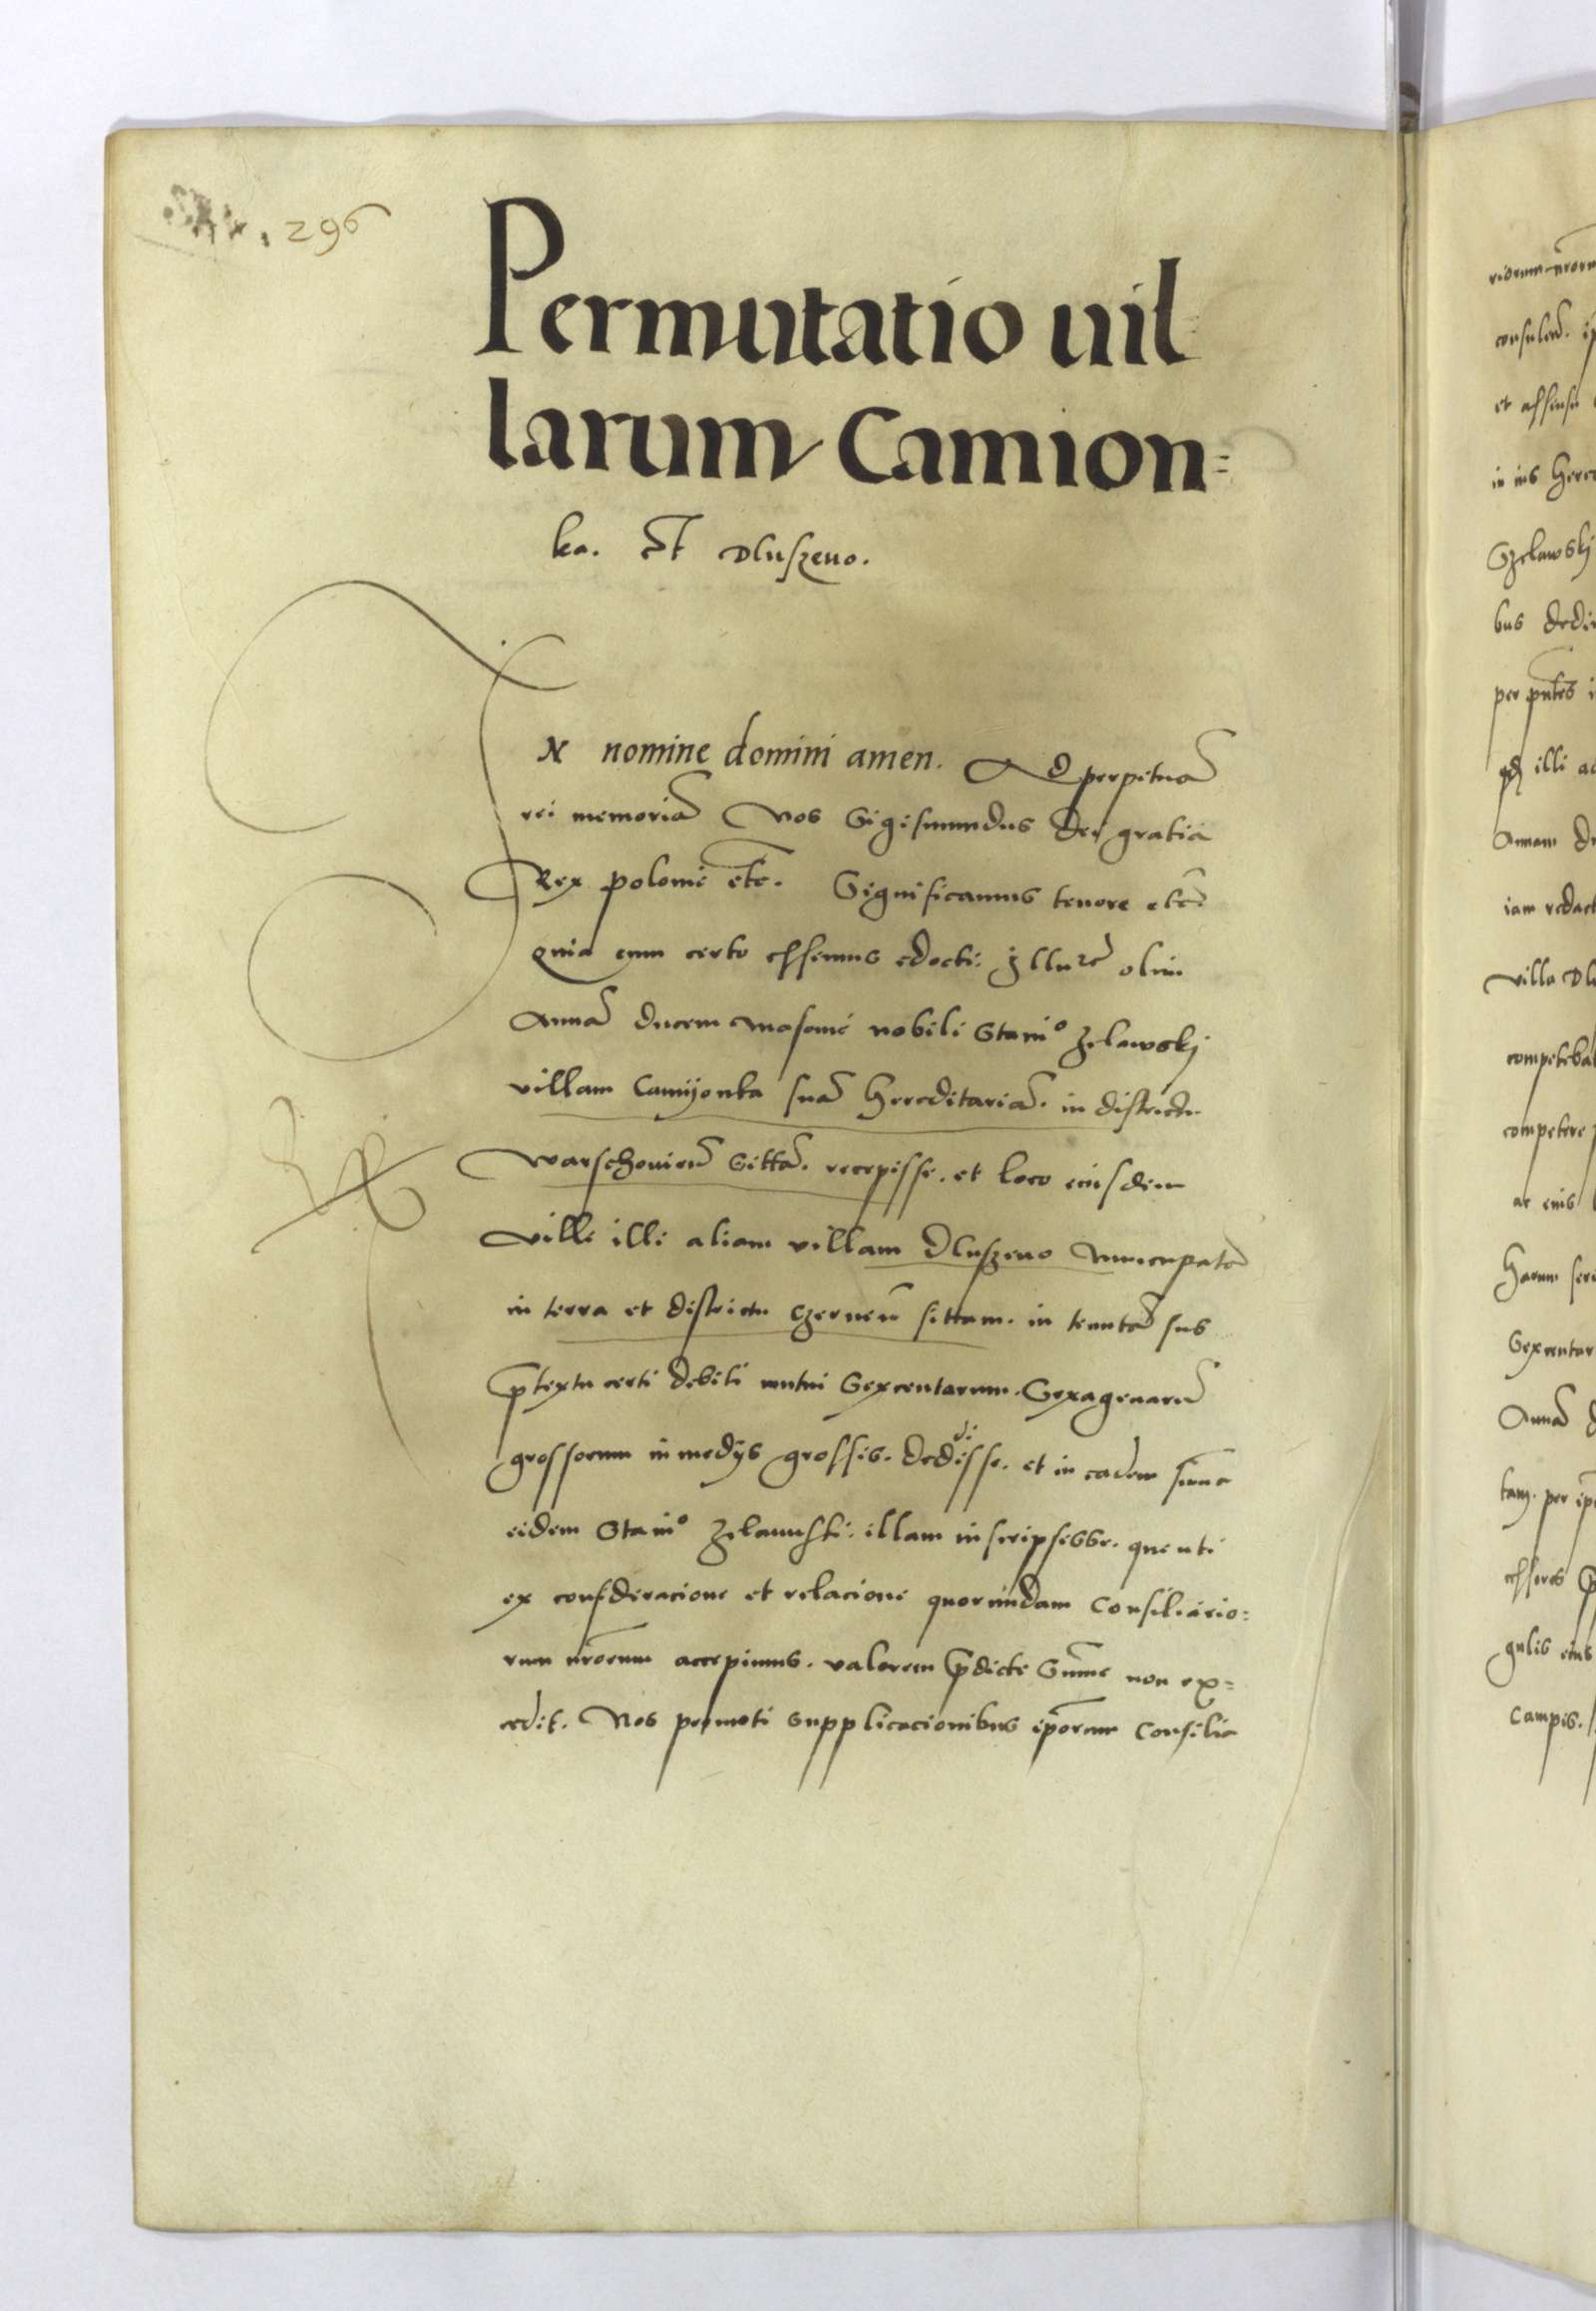 296
Permutatio uil
larum Camion=
ka. Et Dluszeuo.
In nomine domini amen. Ad perpetuā
rei memoriā Nos Sigismundus dei gratia
Rex polonie etc̄. Significamus tenore etc̄
quia cum certo essemus edocti. Illurē olim
Annā ducem Masouie nobili Stanio Zelawskj
villam Camijonka suā hereditariā. in districtu
warschouień sittā. recepisse. et loco eiusdem
ville illi aliam villam Dluszeuo nuncupatā
in terra et districtu Czerneń sittam. in tenutā sub
p̄textu certi debiti mutui Sexcentarum. Sexagenarū
grossorum in medijs grossis. dedisse. et in eadem summa
eidem Stanio Zelauuski. illam inscripsisse. que uti
ex consideracione et relacione quorundam Consiliario=
rum nr̄orum accepimus. valorem p̄dicte Sum̄e non ex=
cedit. Nos promoti supplicacionibus ip̄orum Consilia
consuleń.
et assensu
Gzelawskj
bus
illi
Annam
iam redact
villa Dl
competeba
competere
ac eius
harum
Sexcentar
Annā
tam. per
gulis eius
Campis.